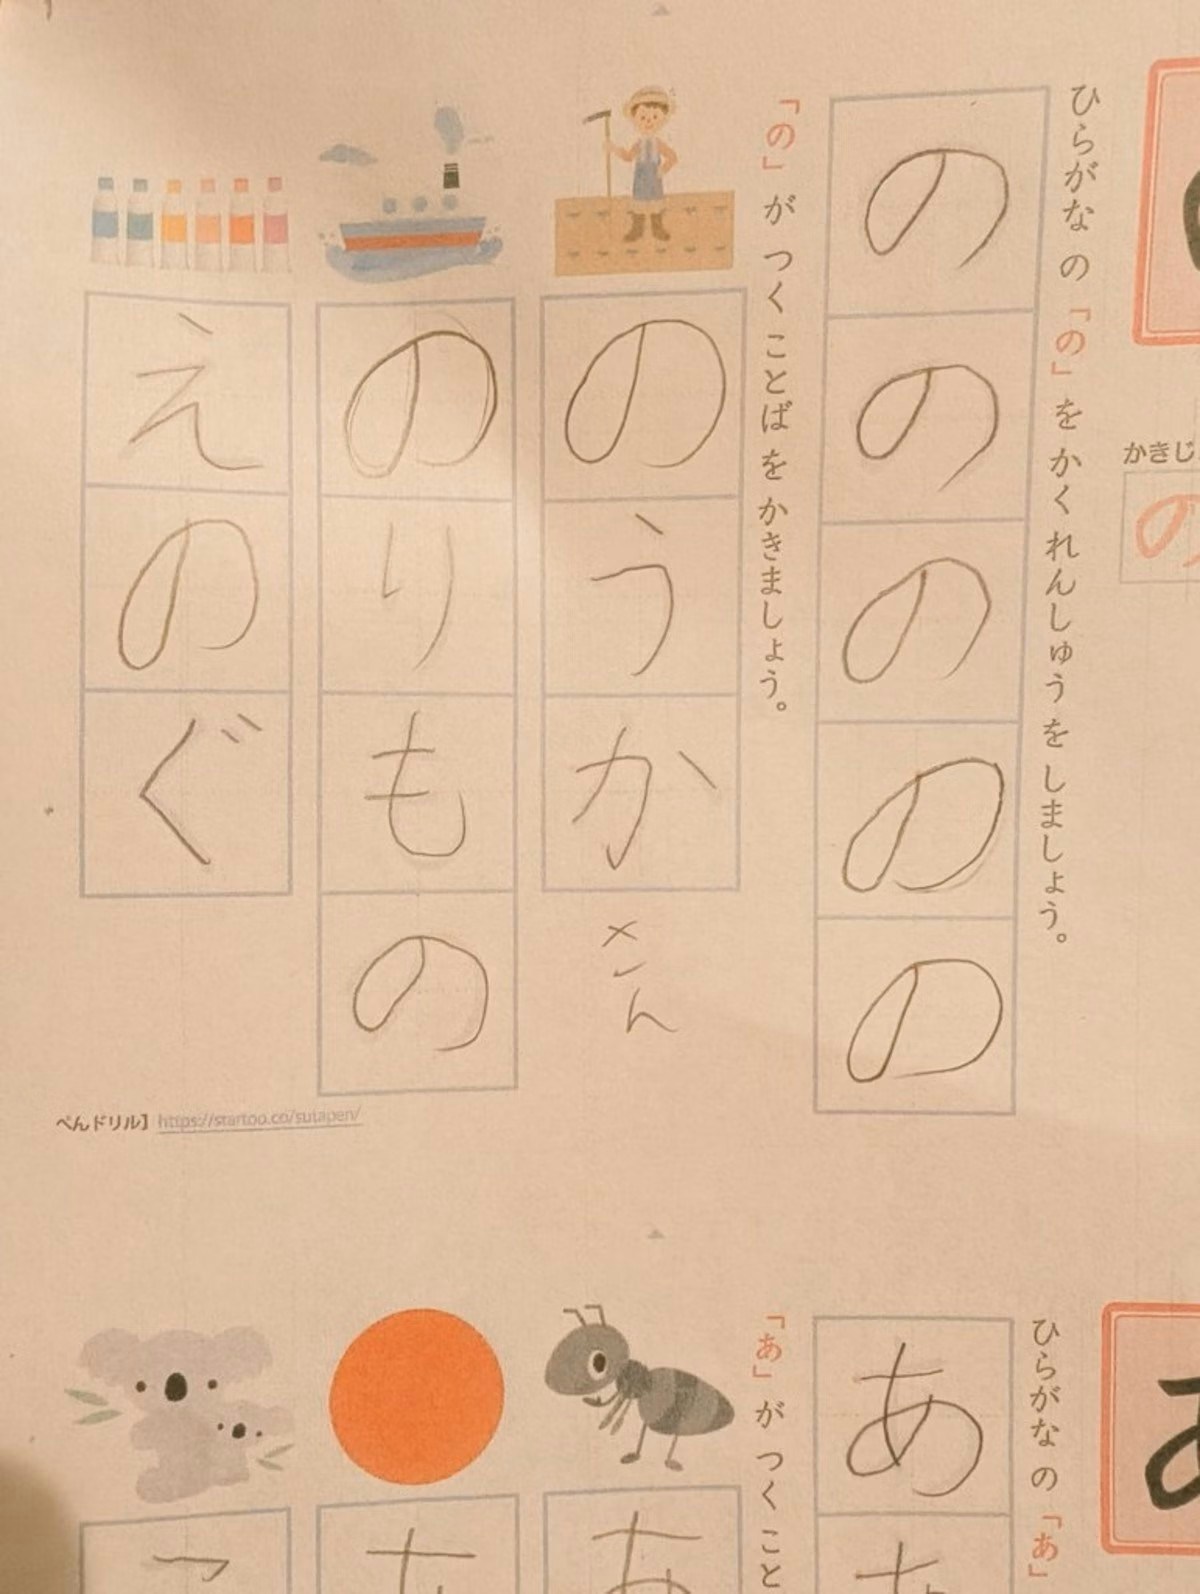 かきじ
の
ひらがな の 「の」 を かく れんしゅう を しましょう。
ののののの
「の」 が つく ことば を かきましょう。
のうかさん
のりもの
えのぐ
ぺんドリル】 https://startoo.co/sutapen/
あ
ひらがな の 「あ」
あ
「あ」 が つく こと
あ